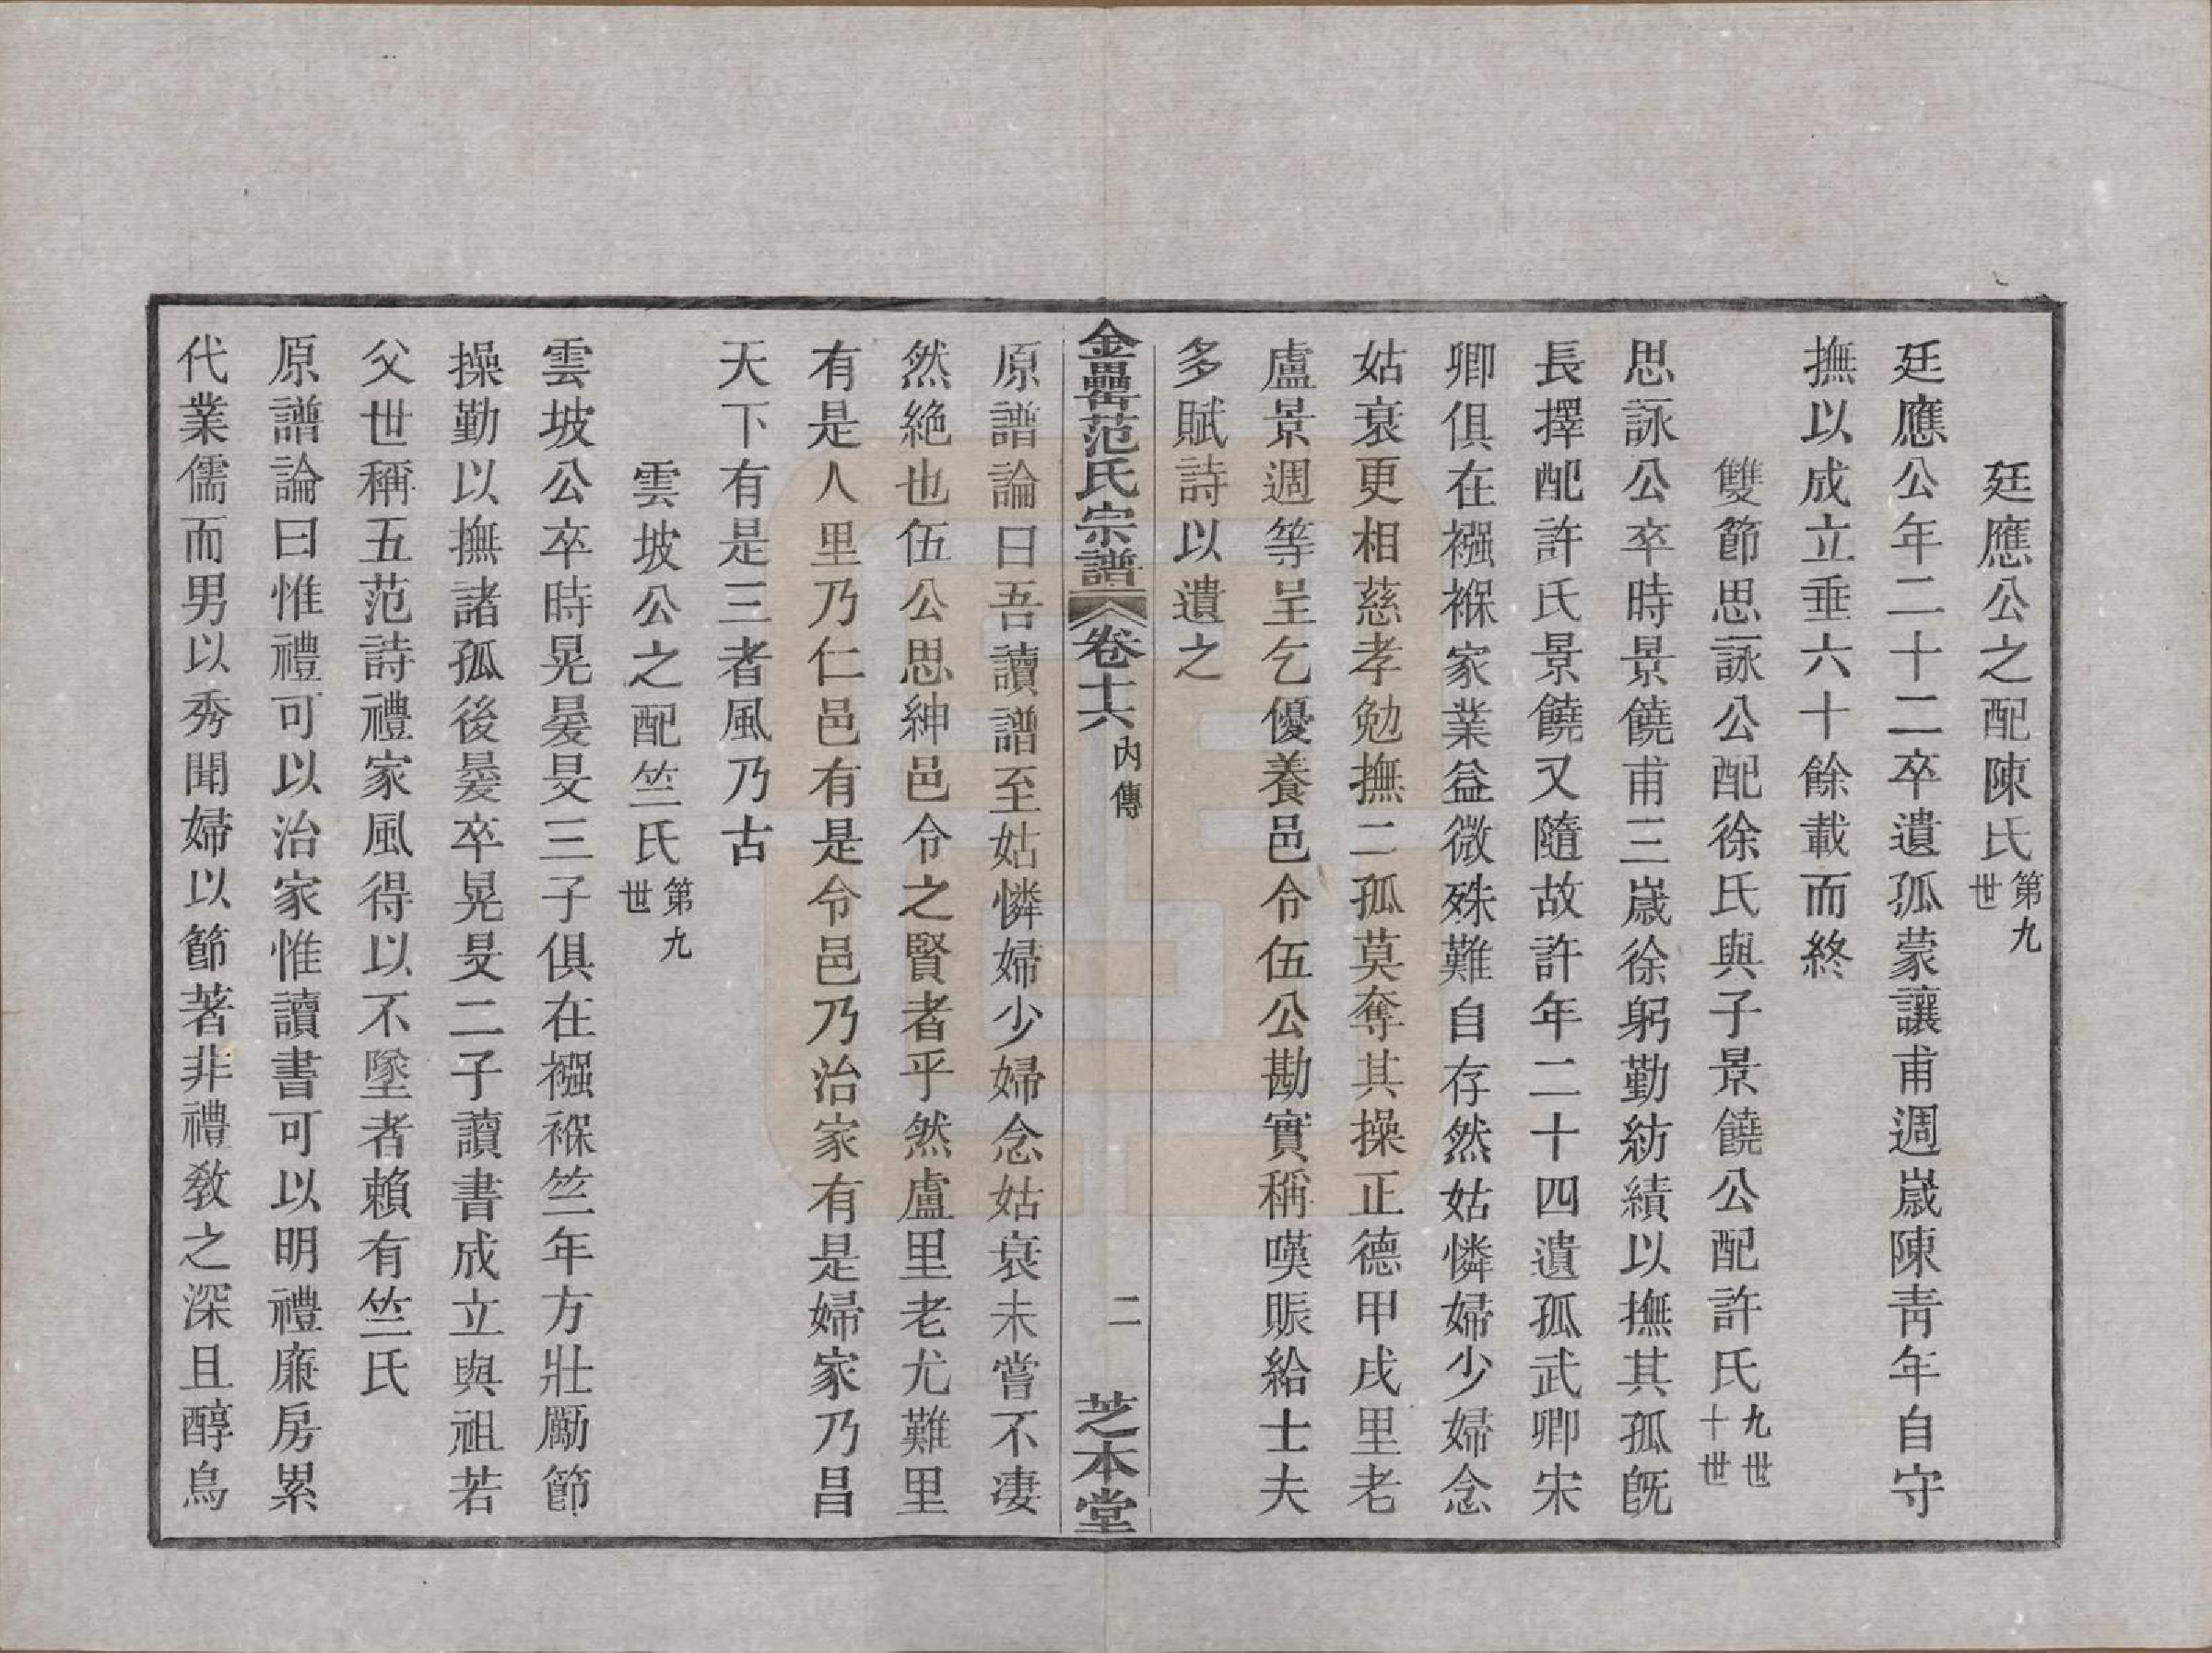 廷應公之配陳氏第九世
廷應公年二十二卒遺孤蒙讓甫週歲陳靑年自守
撫以成立垂六十餘載而終
雙節思詠公配徐氏與子景饒公配許氏九世十世
思詠公卒時景饒甫三歲徐躬勤紡績以撫其孤旣
長擇配許氏景饒又隨故許年二十四遺孤武卿宋
卿俱在襁褓家業益微殊難自存然姑憐婦少婦念
姑衰更相慈孝勉撫二孤莫奪其操正德甲戌里老
盧景週等呈乞優養邑令伍公勘實稱嘆賑給士夫
多賦詩以遺之
金罍范氏宗譜 卷十六 內傳 二 芝本堂
原譜論曰吾讀譜至姑憐婦少婦念姑衰未嘗不凄
然絶也伍公思紳邑令之賢者乎然盧里老尤難里
有是人里乃仁邑有是令邑乃治家有是婦家乃昌
天下有是三者風乃古
雲坡公之配竺氏第九世
雲坡公卒時晃㬊旻三子俱在襁褓竺年方壯勵節
操勤以撫諸孤後㬊卒晃旻二子讀書成立與祖若
父世稱五范詩禮家風得以不墜者賴有竺氏
原譜論曰惟禮可以治家惟讀書可以明禮廉房累
代業儒而男以秀聞婦以節著非禮敎之深且醇烏